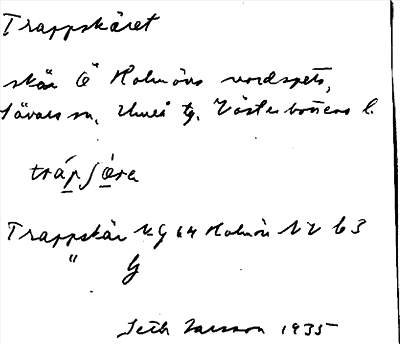 Trappskäret
skär Ö Holmöns nordspets,
Sävars sn. Umeå tg. Västerbottens l.
tráp ʃǽra
Trappskär KG 64 Holmön NV b3
" G
Seth Larsson 1935